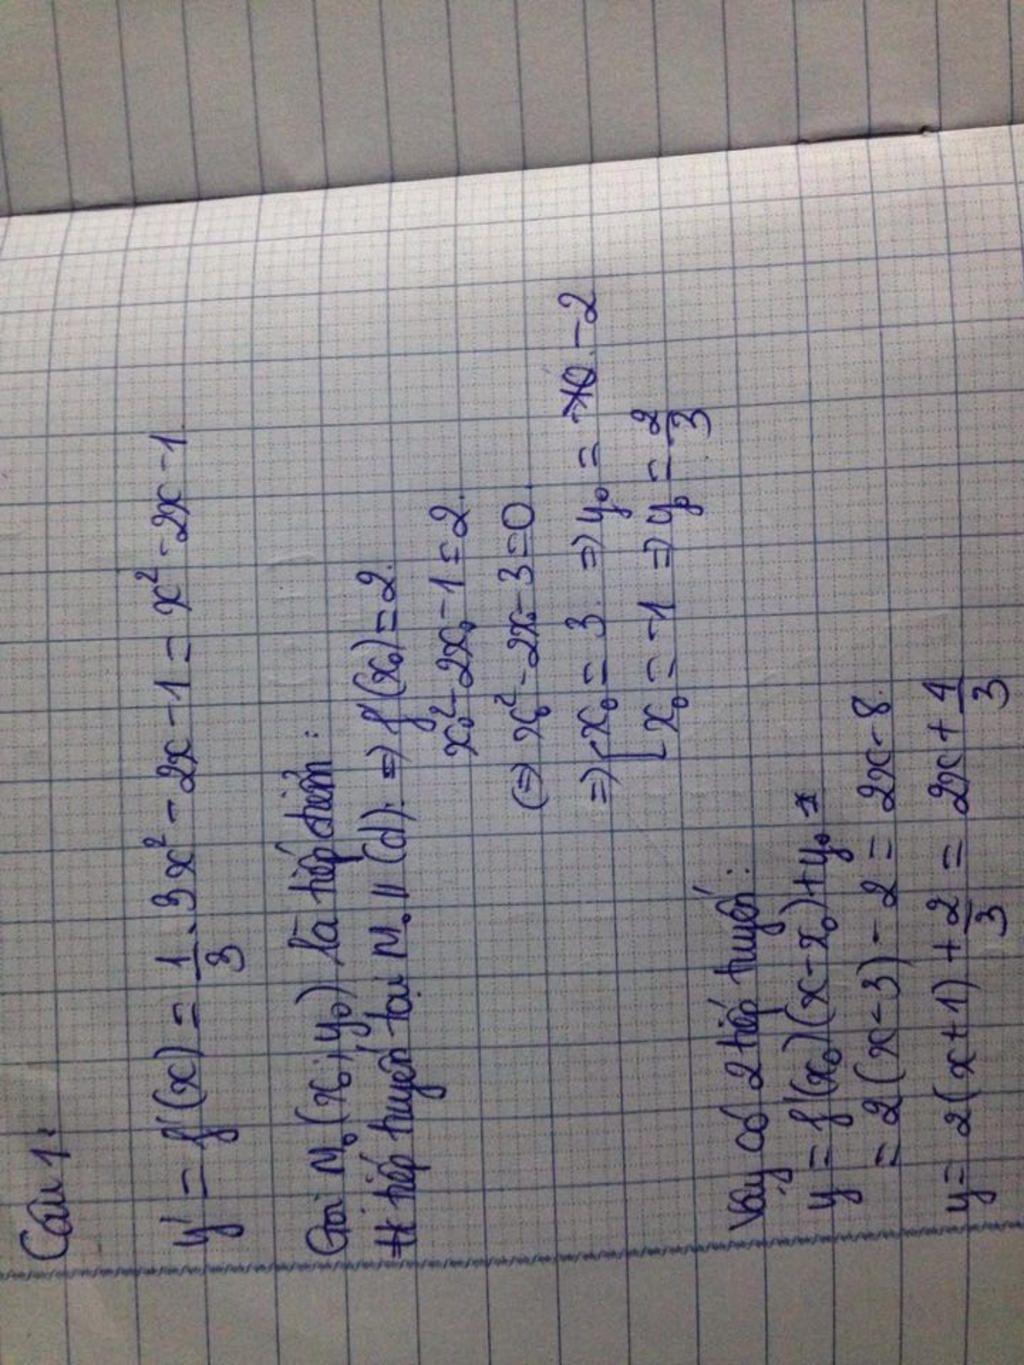 Câu 1:
y' = f'(x) = 1/3 . 3x² - 2x - 1 = x² - 2x - 1
Gọi M₀(x₀; y₀) là tiếp điểm:
tiếp tuyến tại M₀ // (d). => f'(x₀) = 2.
x₀² - 2x₀ - 1 = 2.
(=) x₀² - 2x₀ - 3 = 0.
=) [ x₀ = 3 => y₀ = -2
x₀ = -1 => y₀ = 2/3
Vậy có 2 tiếp tuyến:
y = f'(x₀)(x - x₀) + y₀
= 2(x - 3) - 2 = 2x - 8.
y = 2(x + 1) + 2/3 = 2x + 4/3